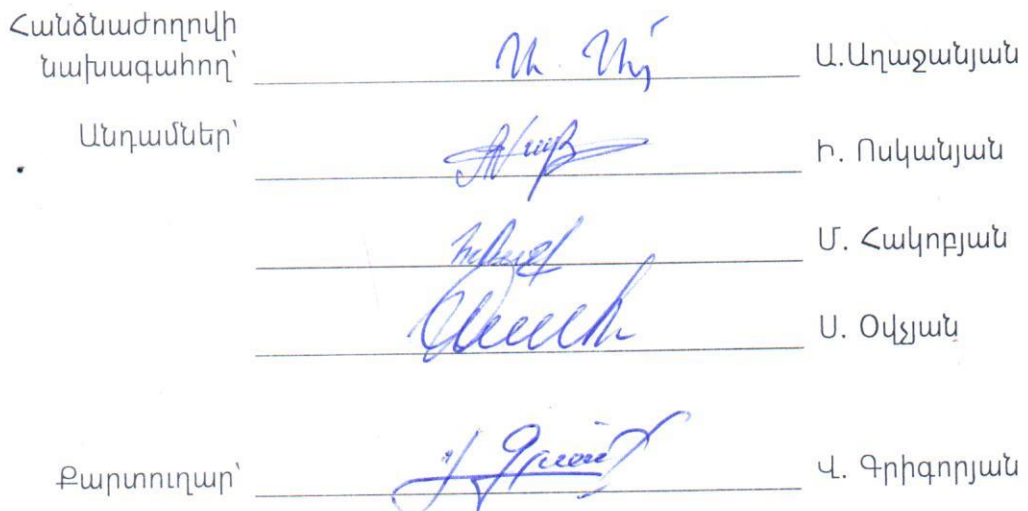 Հանձնաժողովի
նախագահող՝ Ա.Աղաջանյան
Անդամներ՝ Ի. Ոսկանյան
Մ. Հակոբյան
Ս. Օվչյան
Քարտուղար՝ Վ. Գրիգորյան